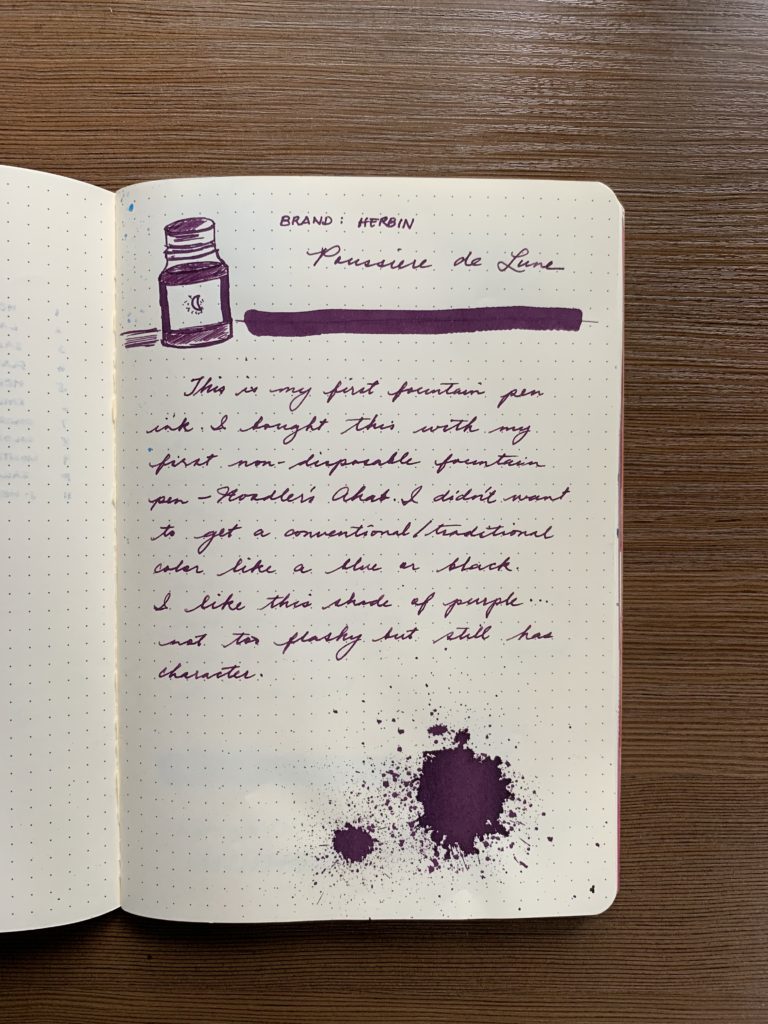 BRAND: HERBIN
Poussiere de Lune
This is my first fountain pen
ink. I bought this with my
first non-disposable fountain
pen - Noodler's Ahab. I didn't want
to get a conventional/traditional
color like a blue or black.
I like this shade of purple...
not too flashy but still has
character.
4